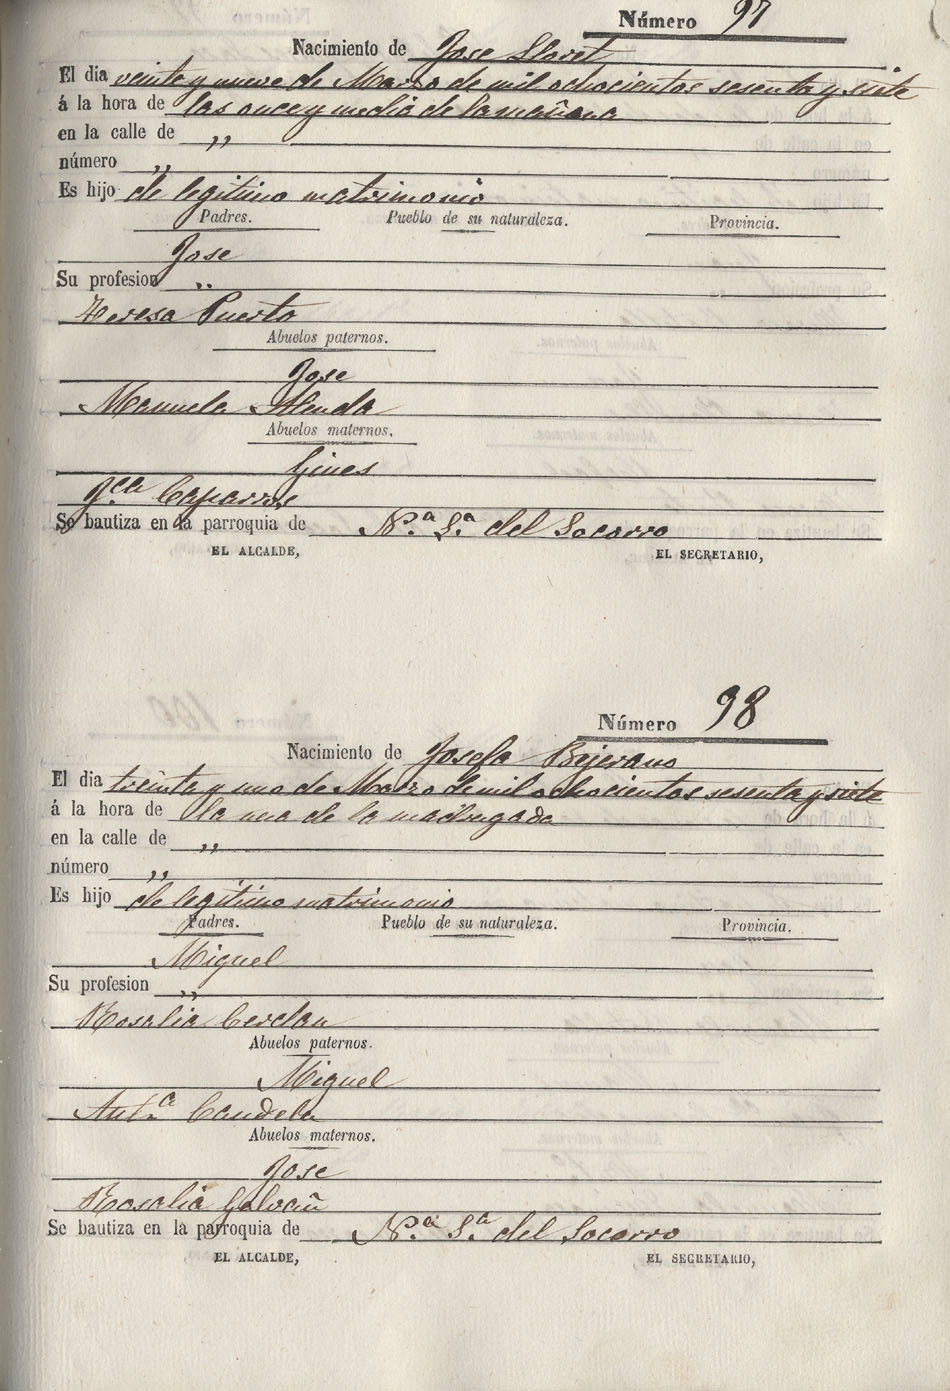 Número 97
Nacimiento de Jose Lloret
El dia veinte y nueve de Marzo de mil ochocientos sesenta y siete
á la hora de las once y media de la mañana
en la calle de ,,
número ,,
Es hijo de legitimo matrimonio
Padres. Pueblo de su naturaleza. Provincia.
Jose
Su profesion ,,
Teresa Puerto
Abuelos paternos.
Jose
Manuela Alenda
Abuelos maternos.
Gines
Fca Caparros
Se bautiza en la parroquia de N.ª S.ª del Socorro
EL ALCALDE, EL SECRETARIO,
Número 98
Nacimiento de Josefa Bejerano
El dia treinta y uno de Marzo de mil ochocientos sesenta y siete
á la hora de la una de la madrugada
en la calle de ,,
número ,,
Es hijo de legitimo matrimonio
Padres. Pueblo de su naturaleza. Provincia.
Miguel
Su profesion ,,
Rosalia Cerdan
Abuelos paternos.
Miguel
Ant.ª Candela
Abuelos maternos.
Jose
Rosalia Galvañ
Se bautiza en la parroquia de N.ª S.ª del Socorro
EL ALCALDE, EL SECRETARIO,